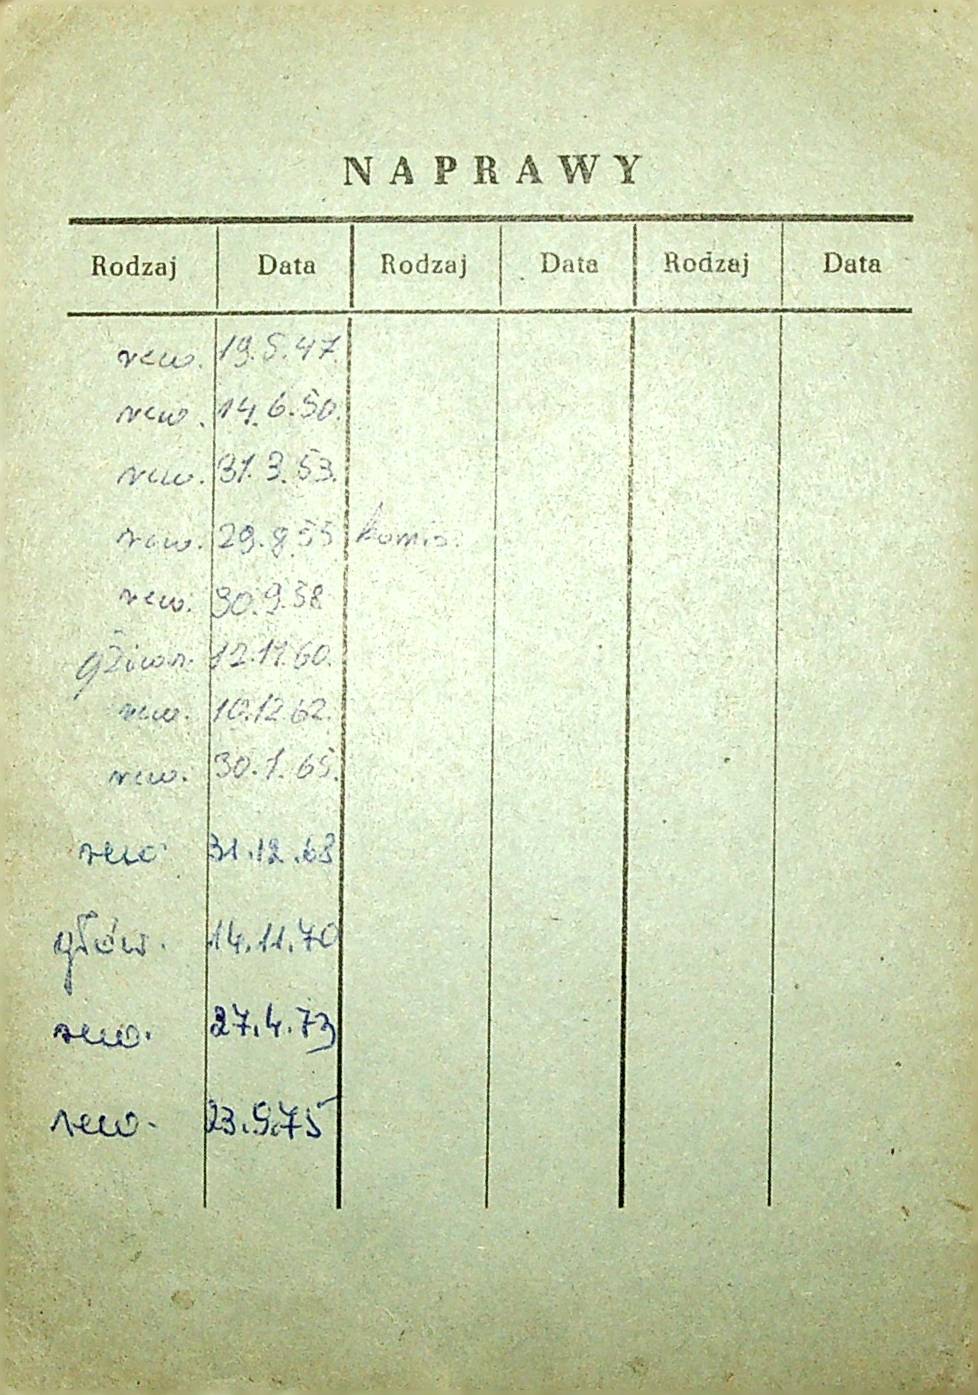 NAPRAWY
Rodzaj Data Rodzaj Data Rodzaj Data
rew. 19.5.47.
rew. 14.6.50.
rew. 31.3.53.
rew. 29.8.55 komis.
rew. 30.9.58
12.11.60.
rew. 10.12.62.
rew. 30.1.65.
rew 31.12.68
głów. 14.11.70
rew. 27.4.73
rew. 23.9.75